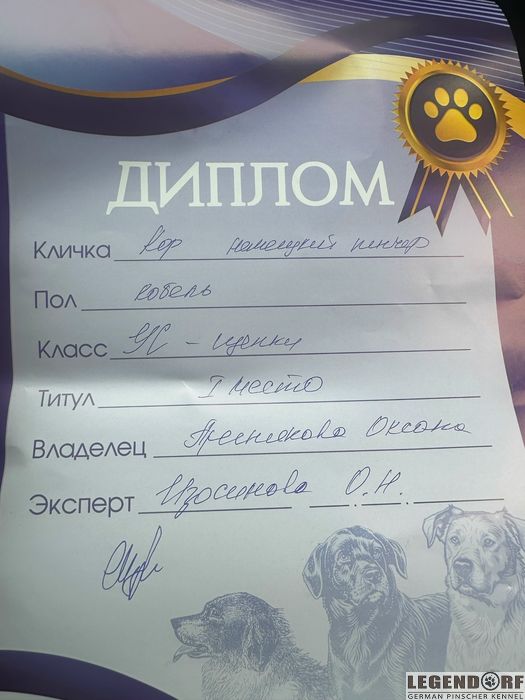 ДИПЛОМ
Кличка Кор немецкий пинчер
Пол кобель
Класс УС - щенки
Титул I место
Владелец Пресникова Оксана
Эксперт Изосимова О.Н.
LEGENDORF
GERMAN PINSCHER KENNEL